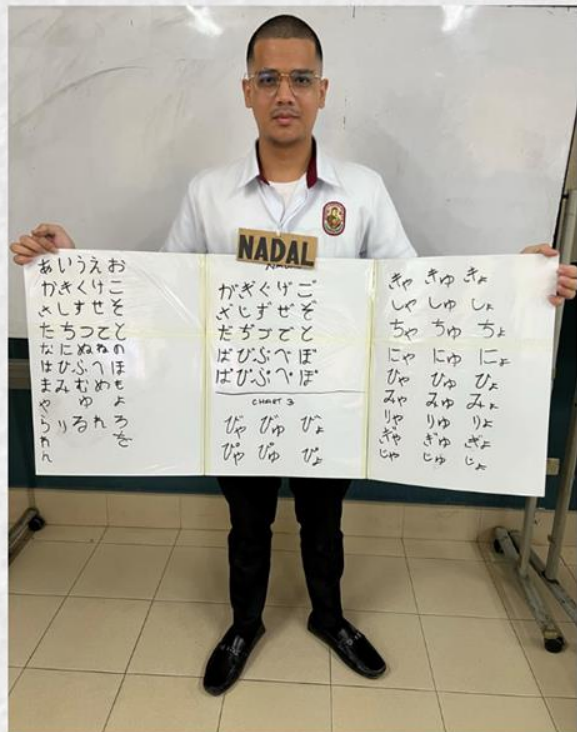 NADAL
あいうえお
かきくけこ
さしすせそ
たちつてと
なにぬねの
はひふへほ
まみむめも
やゆよ
らりるれろ
わを
ん
がぎぐげご
ざじずぜぞ
だぢづでど
ばびぶべぼ
ぱぴぷぺぽ
CHART 3
びゃ びゅ びょ
ぴゃ ぴゅ ぴょ
きゃ きゅ きょ
しゃ しゅ しょ
ちゃ ちゅ ちょ
にゃ にゅ にょ
ひゃ ひゅ ひょ
みゃ みゅ みょ
りゃ りゅ りょ
ぎゃ ぎゅ ぎょ
じゃ じゅ じょ